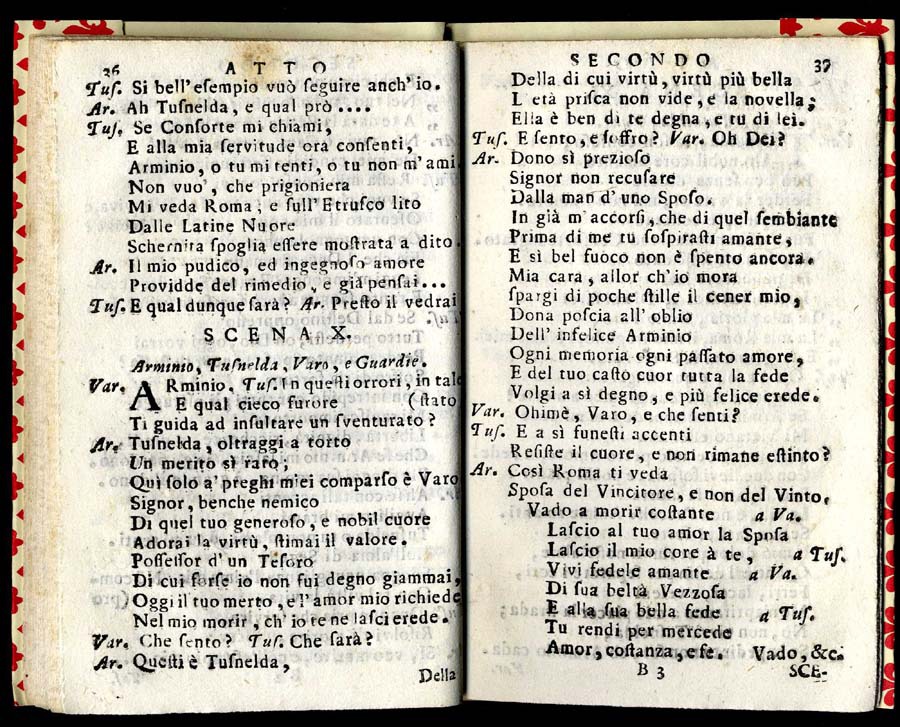 36 ATTO
Tuſ. Si bell' eſempio vuò ſeguire anch' io.
Ar. Ah Tuſnelda, e qual prò ....
Tuſ. Se Conſorte mi chiami,
E alla mia ſervitude ora conſenti,
Arminio, o tu mi tenti, o tu non m' ami.
Non vuo', che prigioniera
Mi veda Roma, e ſull' Etruſco lito
Dalle Latine Nuore
Schernita ſpoglia eſſere moſtrata a dito.
Ar. Il mio pudico, ed ingegnoſo amore
Providde del rimedio, e già penſai...
Tuſ. E qual dunque ſarà? Ar. Preſto il vedrai
SCENA X.
Arminio, Tuſnelda, Varo, e Guardie.
Var. ARminio. Tuſ. In queſti orrori, in tale
E qual cieco furore (ſtato
Ti guida ad inſultare un ſventurato?
Ar. Tuſnelda, oltraggi a torto
Un merito sì raro;
Quì ſolo a' preghi miei comparſo è Varo
Signor, benche nemico
Di quel tuo generoſo, e nobil cuore
Adorai la virtù, ſtimai il valore.
Poſſeſſor d' un Teſoro
Di cui forſe io non fui degno giammai,
Oggi il tuo merto, e l' amor mio richiede
Nel mio morir, ch' io te ne laſci erede.
Var. Che ſento? Tuſ. Che ſarà?
Ar. Queſti è Tuſnelda,
Della
SECONDO 37
Della di cui virtù, virtù più bella
L' età priſca non vide, e la novella;
Ella è ben di te degna, e tu di lei.
Tuſ. E ſento, e ſoffro? Var. Oh Dei?
Ar. Dono sì prezioſo
Signor non recuſare
Dalla man d' uno Spoſo.
In già m' accorſi, che di quel ſembiante
Prima di me tu ſoſpiraſti amante,
E sì bel fuoco non è ſpento ancora.
Mia cara, allor ch' io mora
ſpargi di poche ſtille il cener mio,
Dona poſcia all' oblio
Dell' infelice Arminio
Ogni memoria ogni paſſato amore,
E del tuo caſto cuor tutta la fede
Volgi a sì degno, e più felice erede.
Var. Ohimè, Varo, e che ſenti?
Tuſ. E a sì funeſti accenti
Reſiſte il cuore, e non rimane eſtinto?
Ar. Così Roma ti veda
Spoſa del Vincitore, e non del Vinto.
Vado a morir coſtante a Va.
Laſcio al tuo amor la Spoſa
Laſcio il mio core à te, a Tuſ.
Vivi fedele amante a Va.
Di ſua beltà Vezzoſa
E alla ſua bella fede a Tuſ.
Tu rendi per mercede
Amor, coſtanza, e fe. Vado, &c.
B 3 SCE-